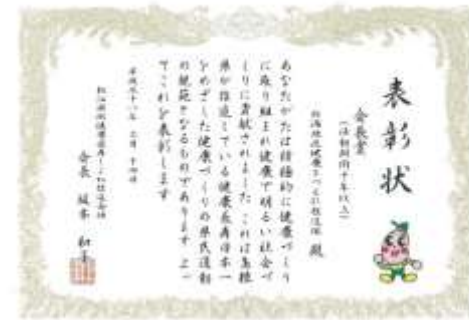 表彰状
会長賞
(活動期間十年以上)
松海地区健康まつり推進隊 殿
あなたがたは積極的に健康づくり
に取り組まれ健康で明るい社会づ
くりに貢献されました これは島根
県が推進している健康長寿日本一
をめざした健康づくりの県民運動
の模範となるものであります よっ
てこれを表彰します
平成 年 三月 十四日
会長